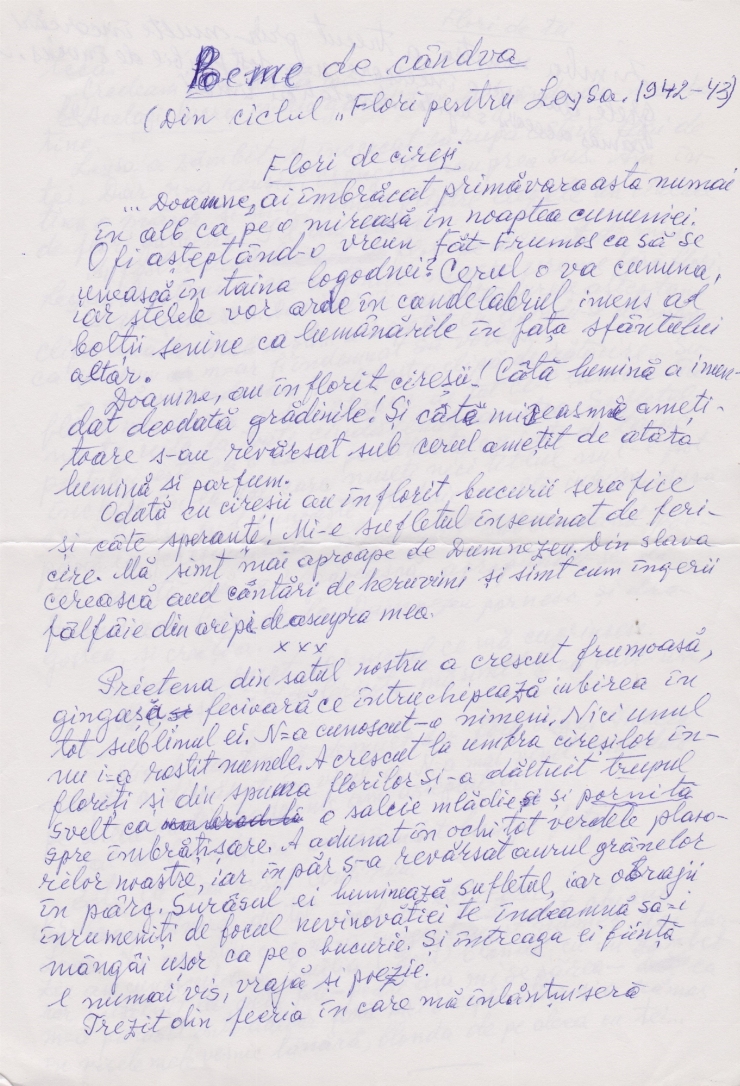 Poeme de cândva
(Din ciclul „Flori pentru Leysa. 1942-43)
Flori de cireși
... Doamne, ai îmbrăcat primăvara asta numai
în alb ca pe o mireasă în noaptea cununiei.
O fi așteptând-o vreun Făt-Frumos ca să se
unească în taina logodnei? Cerul o va cununa,
iar stelele vor arde în candelabrul imens al
bolții senine ca lumânările în fața sfântului
altar.
Doamne, au înflorit cireșii! Câtă lumină a inun-
dat deodată grădinile! Și câte miresme ameți-
toare s-au revărsat sub cerul amețit de atâta
lumină și parfum.
Odată cu cireșii au înflorit bucurii serafice
și câte speranțe! Mi-e sufletul înseninat de feri-
cire. Mă simt mai aproape de Dumnezeu. Din slava
cerească aud cântări de heruvimi și simt cum îngerii
fâlfâie din aripi deasupra mea.
x x x
Prietena din satul nostru a crescut frumoasă,
gingașă fecioară ce întruchipează iubirea în
tot sublimul ei. N-a cunoscut-o nimeni. Nici unul
nu i-a rostit numele. A crescut la umbra cireșilor în-
floriți și din spuma florilor și-a dăltuit trupul
svelt ca o salcie mlădie și pornită
spre îmbrățișare. A adunat în ochi tot verdele plaso-
rilor noastre, iar în păr s-a revărsat aurul grânelor
în pârg. Surâsul ei luminează sufletul, iar obrajii
înrumeniți de focul nevinovăției te îndeamnă să-i
mângâi ușor ca pe o bucurie. Și întreaga ei ființă
e numai vis, vrajă și poezie.
Trezit din feeria în care mă înlănțuiseră